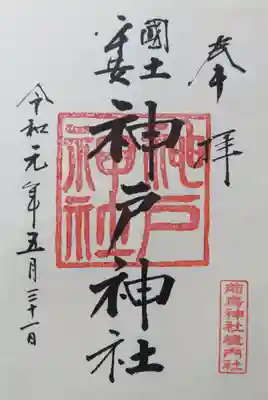 奉拝
國土
神戸神社
令和元年五月三十一日
神戸
神社
前鳥神社境内社